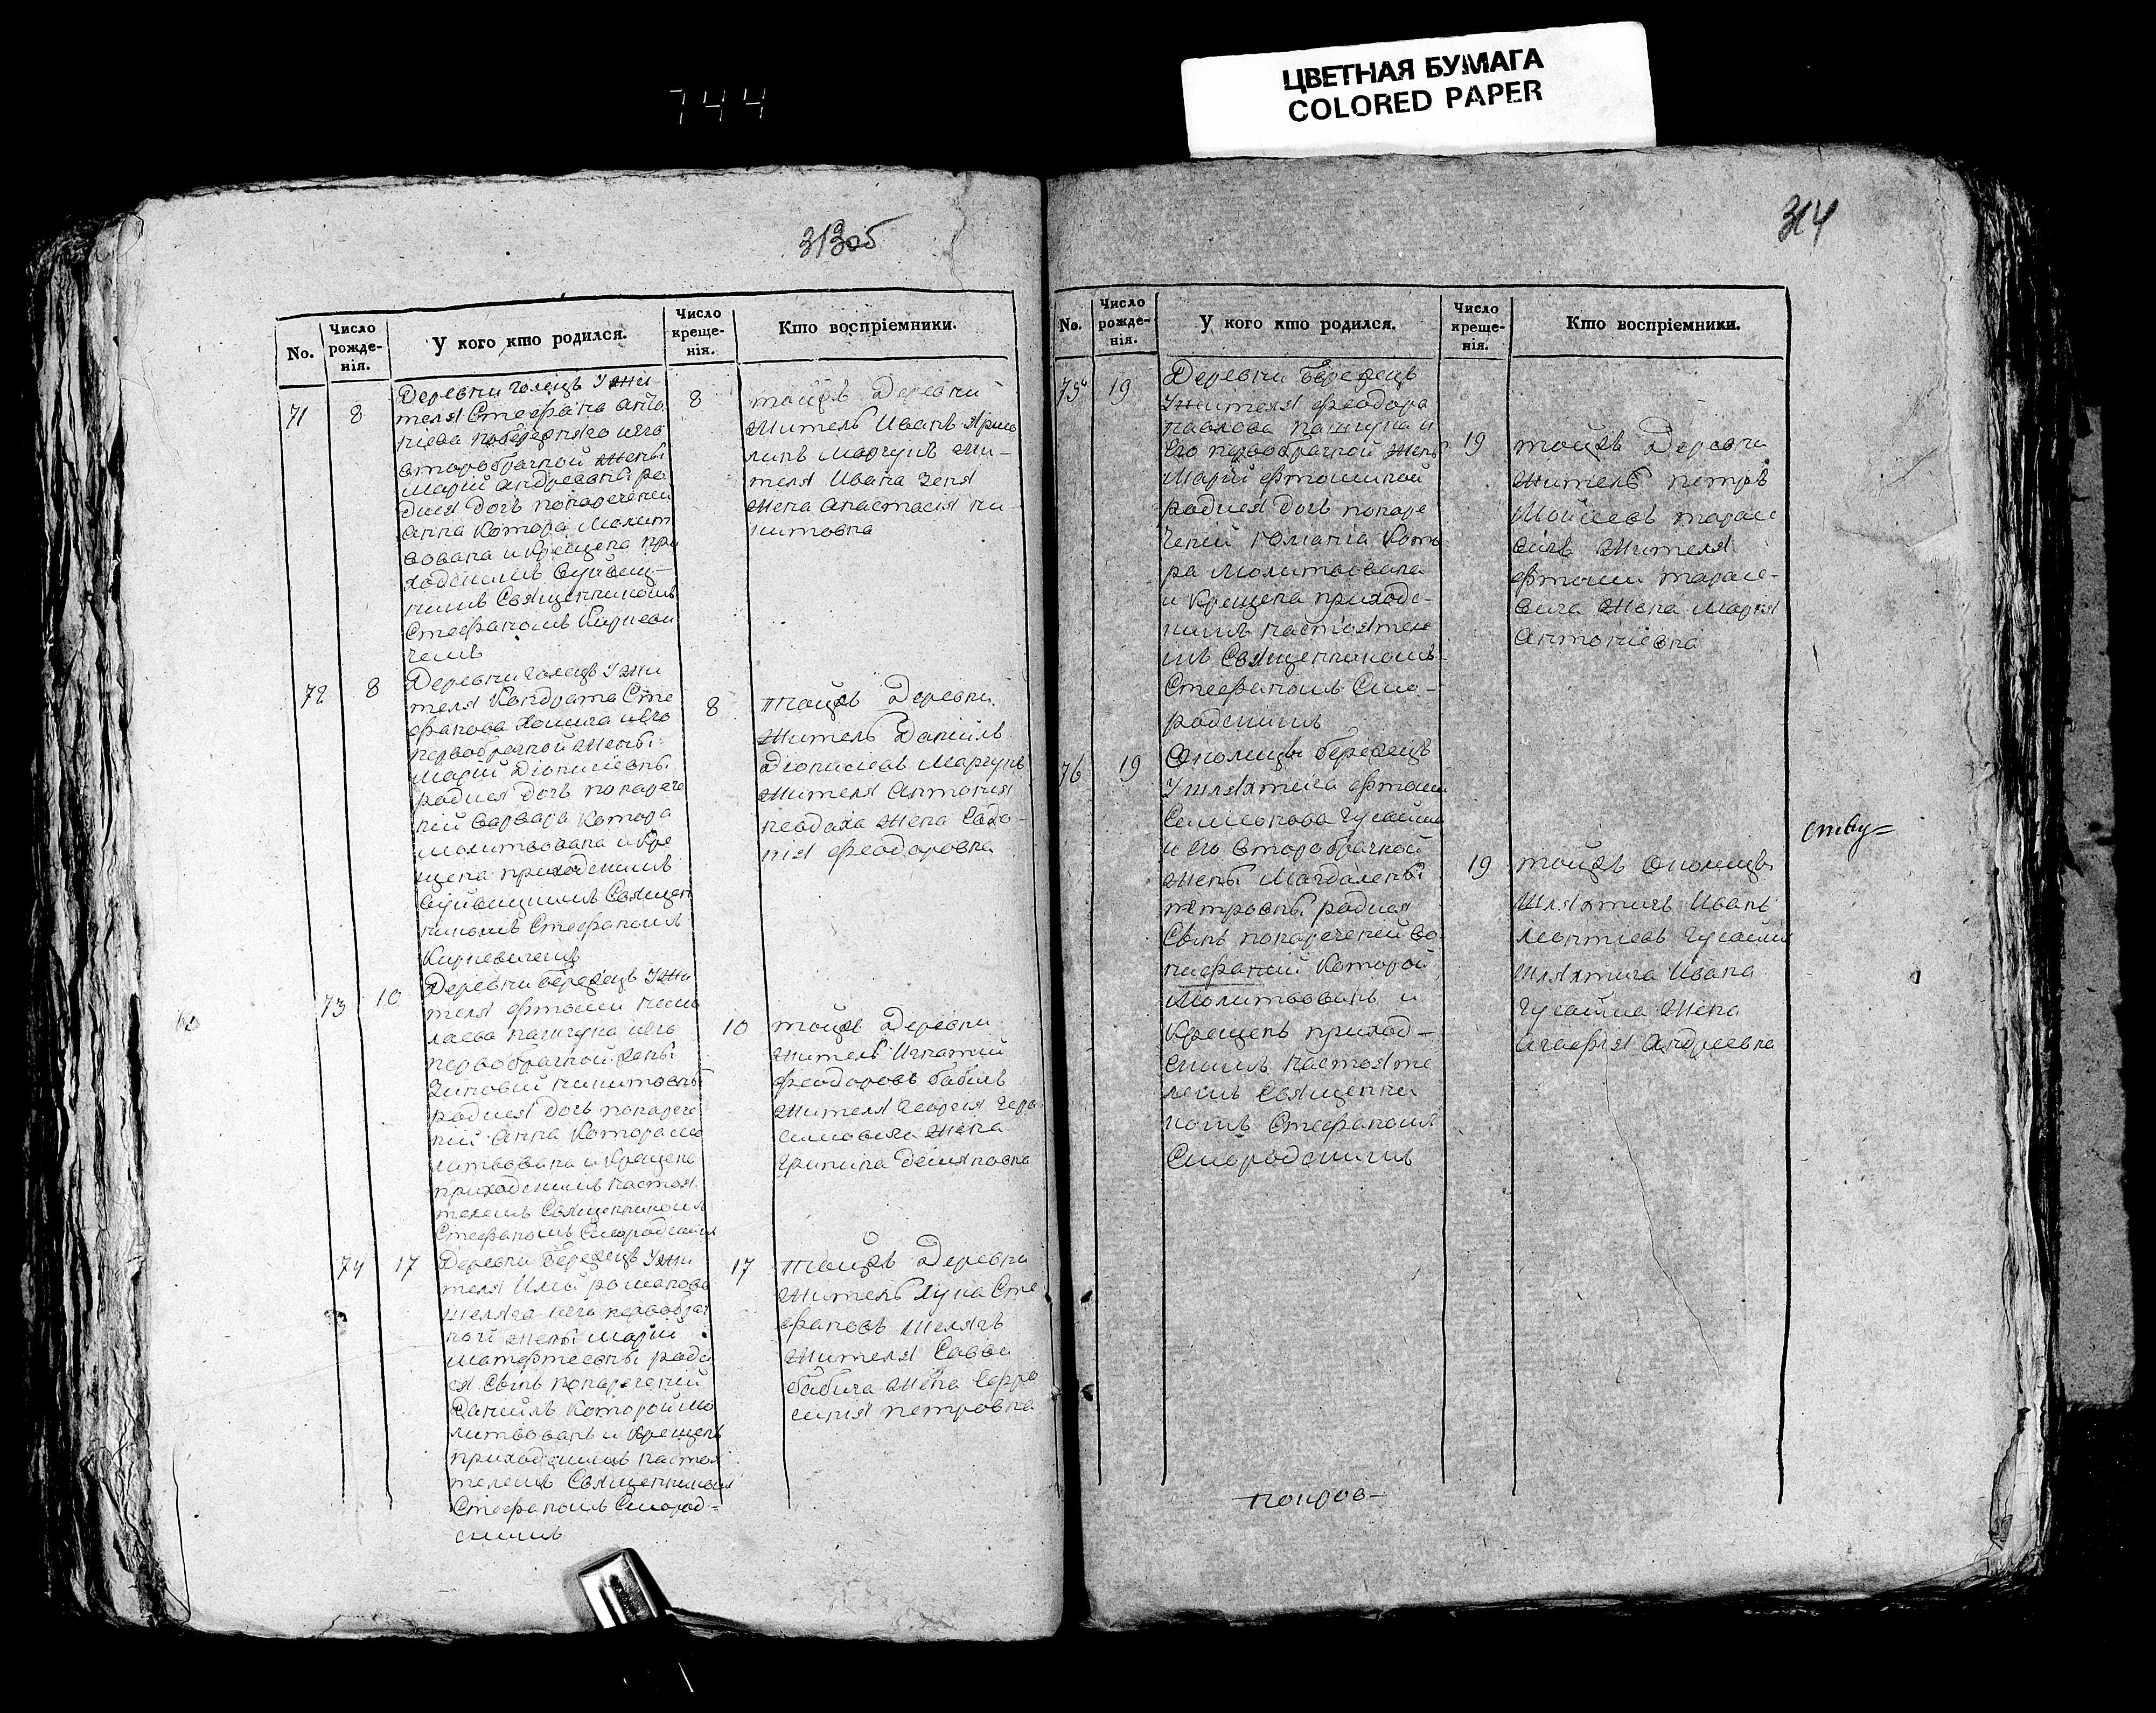 744
ЦВЕТНАЯ БУМАГА
COLORED PAPER
313об
No.
Число рожде-нія.
У кого кто родился.
Число креще-нія.
Кто воспріемники.
71
8
Деревни голецъ у жи
теля Стефана анто
ніева и его
второбрачной жены
Маріи андреевны ро
дися дочь понаречении
анна котора молит
вована и крещена при
ходскимъ
нимъ Священникомъ
Стефаномъ Кирневи
чемъ
8
тойжъ Деревни
житель Иванъ
Маргунъ жи-
теля Ивана
жена анастасія ни
китовна
72
8
Деревни голецъ у жи
теля Кондрата Сте
фанова и его
первобрачной жены
Маріи Діонисіевны
родися дочь понарече
ніи варвара котора
молитвована и кре
щена приходскимъ
Священ
никомъ Стефаномъ
Кирневичемъ
8
тойжъ Деревни
житель Даніилъ
Діонисіевъ Маргунъ
жителя антонія
жена
нія феодоровна
73
10
Деревни березецъ у жи
теля фтоми нико
лаева пашчука и его
первобрачной жены
Зиновіи никитовны
родися дочь понарече
ніи анна котора мо
литвована и крещена
приходскимъ настоя
телемъ Священникомъ
Стефаномъ Смородскимъ
10
тойжъ Деревни
житель Игнатій
феодоровъ бабичъ
жителя Георгія гера
симовича жена
Гринина демяновна
74
17
Деревни березецъ у жи
теля Иліи романова
шеляга и его первобрач
ной жены Маріи
матфтеевны роди
ся Сынъ понареченіи
Даніилъ которой мо
литвованъ и крещенъ
приходскимъ настоя
телемъ Священникомъ
Стефаномъ Смород-
скимъ
17
тойжъ Деревни
житель лука Сте
фановъ шелягъ
жителя Саввы
бабича жена Евфро
синія петровна
314
No.
Число рожде-нія.
У кого кто родился.
Число креще-нія.
Кто воспріемники.
75
19
Деревни березецъ
у жителя феодора
павлова пашчука и
его первобрачной жены
Маріи фтоминой
родися дочь понаре
ченіи юліанія кото
ра молитвована
и крещена приходс-
кимъ настоятеле
мъ Священникомъ
Стефаномъ Смо-
родскимъ
19
тойжъ Деревни
житель петръ
Моисеевъ тарасе
вичъ жителя
фтоми тарасе-
вича жена Марія
антоніевна
76
19
Околицы березецъ
у шляхтича фтоми
Семіонова
и его второбрачной
жены Магдалены
петровны родися
Сынъ понареченіи во
нифатій которой
молитвованъ и
крещенъ приход-
скимъ настояте
лемъ Священни
комъ Стефаномъ
Смородскимъ
19
тойжъ околицы
шляхтичъ Иванъ
леонтіевъ
шляхтича Ивана
жена
агафія андреевна
покров-